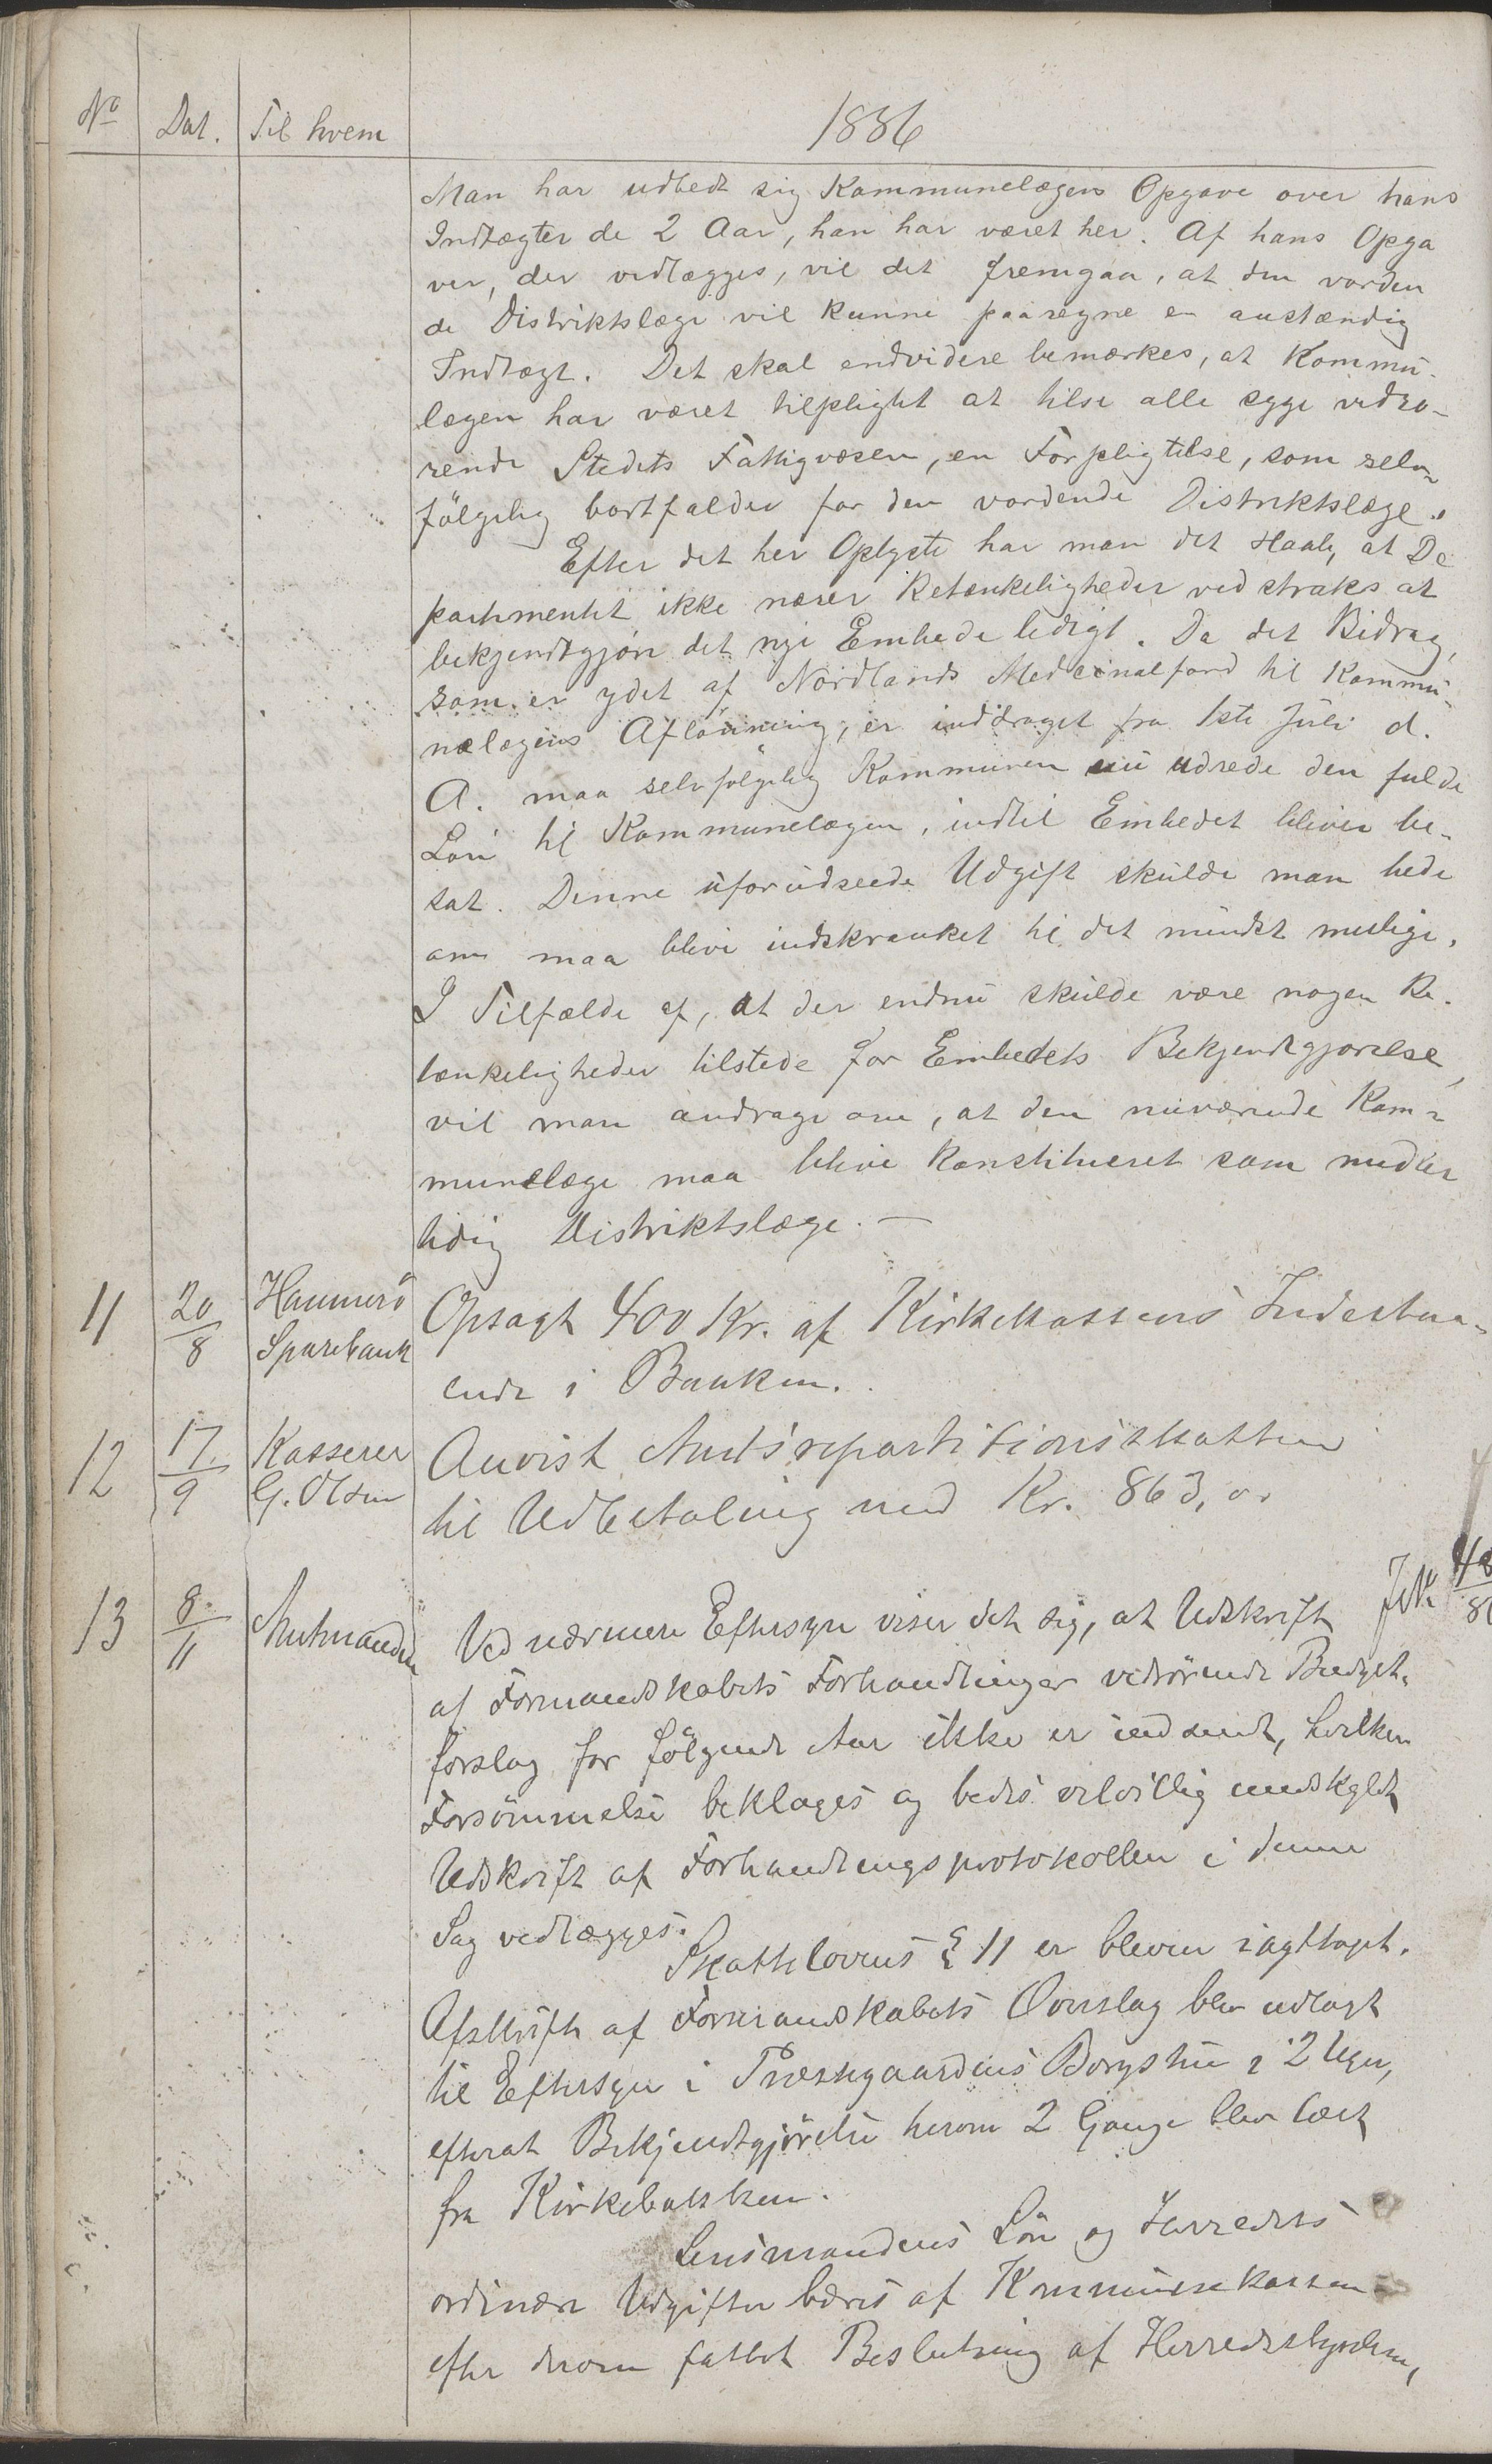 No Dat. Til hvem 1886
Man har udbedt sig Kommunelægens Opgave over hans
Indtægter de 2 Aar, han har været her. Af hans Opga
ver, der vedlægges, vil det fremgaa, at den vorden
de Distriktslæge vil kunne paaregne en anstændig
Indtægt. Det skal endvidere bemærkes, at Kommu-
lægen har været tilpligtet at tilse alle syge vedrø-
rende Stedets Fattigvæsen, en Forpligtelse, som selv-
følgelig bortfalder for den vordende Distriktslæge.
Efter det her Oplyste har man det Haab, at De
partementet ikke nærer Betænkeligheder ved straks at
bekjendtgjøre det nye Embede ledigt. Da det Bidrag,
som er ydet af Nordlands Medicinalfond til Kommu-
nelægens Aflønning, er inddraget fra 1ste Juli d.
A. maa selvfølgelig Kommunen nu udrede den fulde
Løn til Kommunelægen, indtil Embedet bliver be-
sat. Denne uforudseede Udgift skulde man bede
om maa blive indskrænket til det mindst mulige.
I Tilfælde af, at der endnu skulde være nogen Be-
tænkeligheder tilstede for Embedets Bekjendtgjørelse,
vil man andrage om, at den nuværende Kom-
munelæge maa blive konstitueret som midler
tidig Distriktslæge. —
11 20/8 Hammerö Sparebank Opsagt 400 Kr. af Kirkekassens Indestaa-
ende i Banken.
12 17/9 Kasserer G. Olsen Anvist Amtsrepartitionsskatten
til Udbetaling med Kr. 863,00
13 8/11 Amtmanden Ved nærmere Eftersyn viser det sig, at Udskrift
af Formandskabets Forhandlinger vedrörende Budget-
forslag for fölgende Aar ikke er indsendt, hvilken
Forsömmelse beklages og bedes velvillig undskyldt
Udskrift af Forhandlingsprotokollen i denne
Sag vedlægges.
Skattelovens § 11 er bleven iagttaget.
Afskrift af Formandskabets Overslag blev udlagt
til Eftersyn i Præstegaardens Borgstue i 2 Uger,
efterat Bekjendtgjörelse herom 2 Gange blev læst
fra Kirkebakken.
Lensmandens Lön og Herredets
ordinære Udgifter bæres af Kommunekassen
efter derom fattet Beslutning af Herredsstyrelsen,